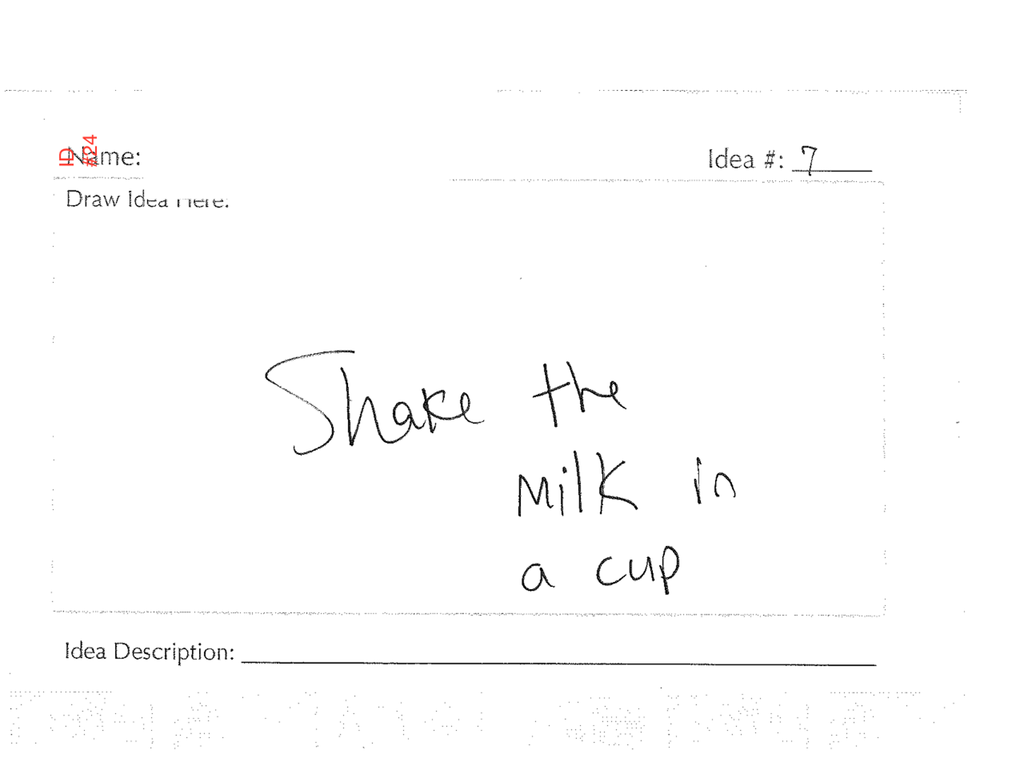 ID #24
Name:
Idea #: 7
Draw Idea Here:
Shake the
Milk in
a cup
Idea Description: